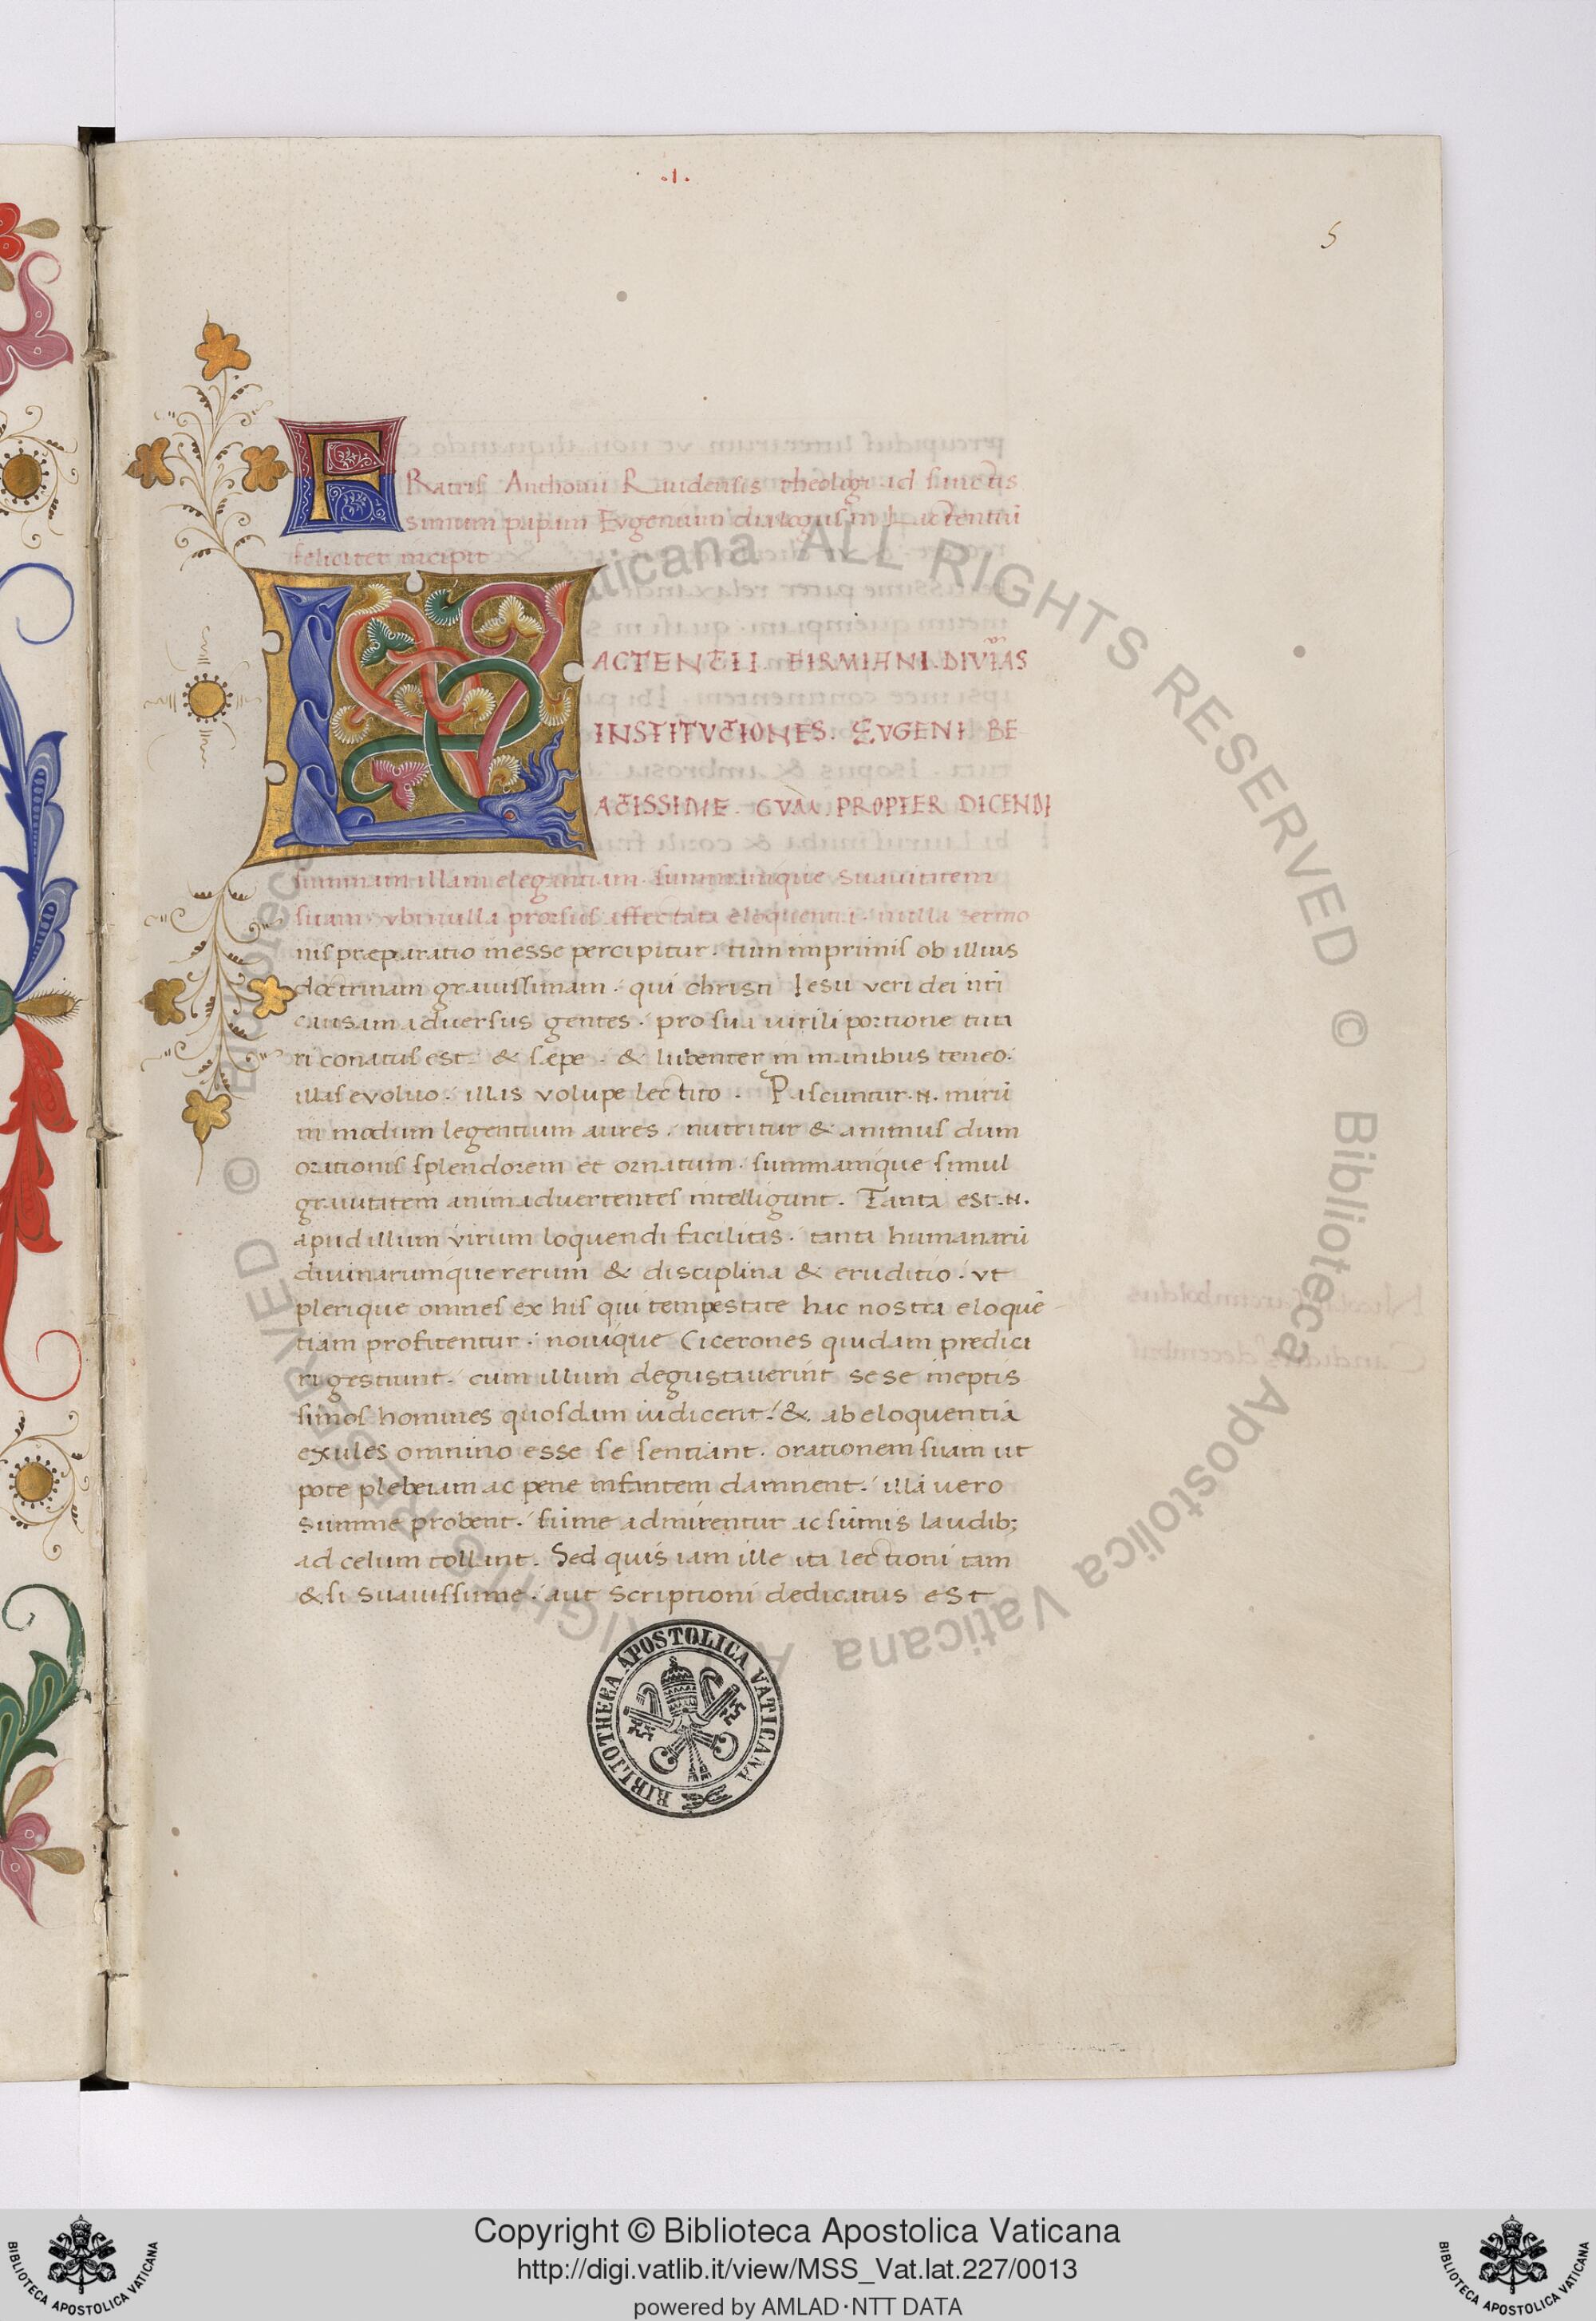 .1.
5
FRatris Anthonii Raudensis theologi ad sanctis
simum papam Eugenium dialogus in Lactentiū
feliciter incipit
LACTENTII FIRMIANI DIVIAS
INSTITVTIONES. EVGENI BE
ATISSIME. CVM PROPTER DICENDI
summam illam elegantiam. summamque suauitatem
suam. vbi nulla prorsus affectata eloquentia. nulla sermo
nis præparatio inesse percipitur. tum imprimis ob illius
doctrinam grauissimam. qui christi Iesu veri dei nri
causam aduersus gentes. pro sua uirili portione tuta
ri conatus est. & sæpe. & lubenter in manibus teneo.
illas evoluo. illas volupe lectito. Pascuntur .n. mirū
in modum legentium aures. nutritur & animus dum
orationis splendorem et ornatum. summamque simul
grauitatem animaduertentes intelligunt. Tanta est .n.
apud illum virum loquendi facilitas. tanta humanarū
diuinarumque rerum & disciplina & eruditio. vt
plerique omnes ex his qui tempestate hac nostra eloquē
tiam profitentur. nouique Cicerones quidam predica
ri gestiunt. cum illum degustauerint sese ineptis
simos homines quosdam iudicent. & ab eloquentia
exules omnino esse se sentiant. orationem suam ut
pote plebeiam ac pene infantem damnent. illā vero
summe probent. sūme admirentur ac sūmis laudib;
ad celum tollant. Sed quis iam ille ita lectioni tam
& si suauissime. aut scriptioni dedicatus est
BIBLIOTHECA APOSTOLICA VATICANA
© Biblioteca Apostolica Vaticana ALL RIGHTS RESERVED © Biblioteca Apostolica Vaticana ALL RIGHTS RESERVED
Copyright © Biblioteca Apostolica Vaticana
http://digi.vatlib.it/view/MSS_Vat.lat.227/0013
powered by AMLAD·NTT DATA
BIBLIOTECA APOSTOLICA VATICANA
BIBLIOTECA APOSTOLICA VATICANA